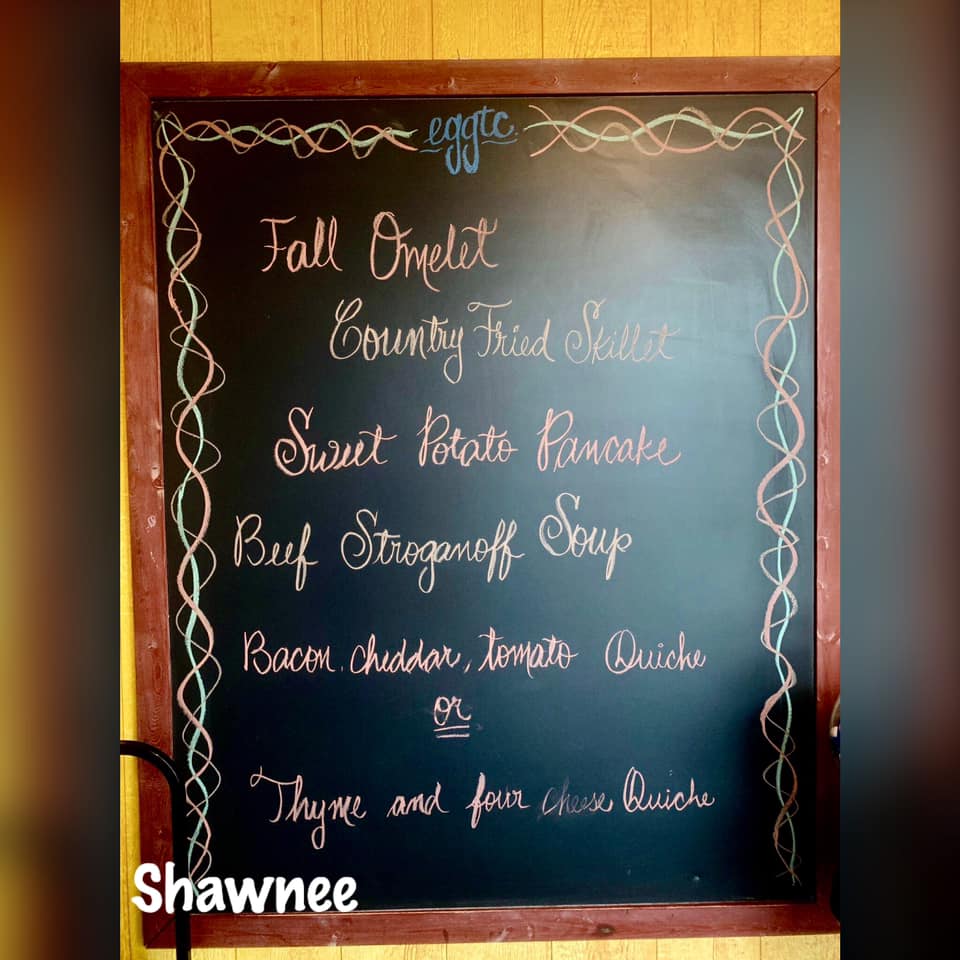 eggtc.
Fall Omelet
Country Fried Skillet
Sweet Potato Pancake
Beef Stroganoff Soup
Bacon, cheddar, tomato Quiche
or
Thyme and four cheese Quiche
Shawnee